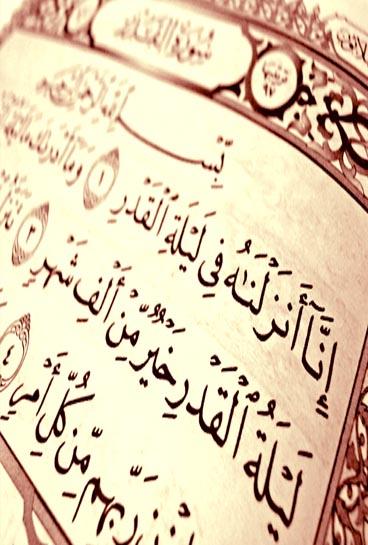 سُورَةُ الْقَدْرِ
بِسْمِ اللَّهِ الرَّحْمَٰنِ الرَّحِيمِ
إِنَّآ أَنزَلْنَٰهُ فِى لَيْلَةِ ٱلْقَدْرِ ١ وَمَآ أَدْرَىٰكَ
لَيْلَةُ ٱلْقَدْرِ خَيْرٌ مِّنْ أَلْفِ شَهْرٍ ٣
رَبِّهِم مِّن كُلِّ أَمْرٍ ٤